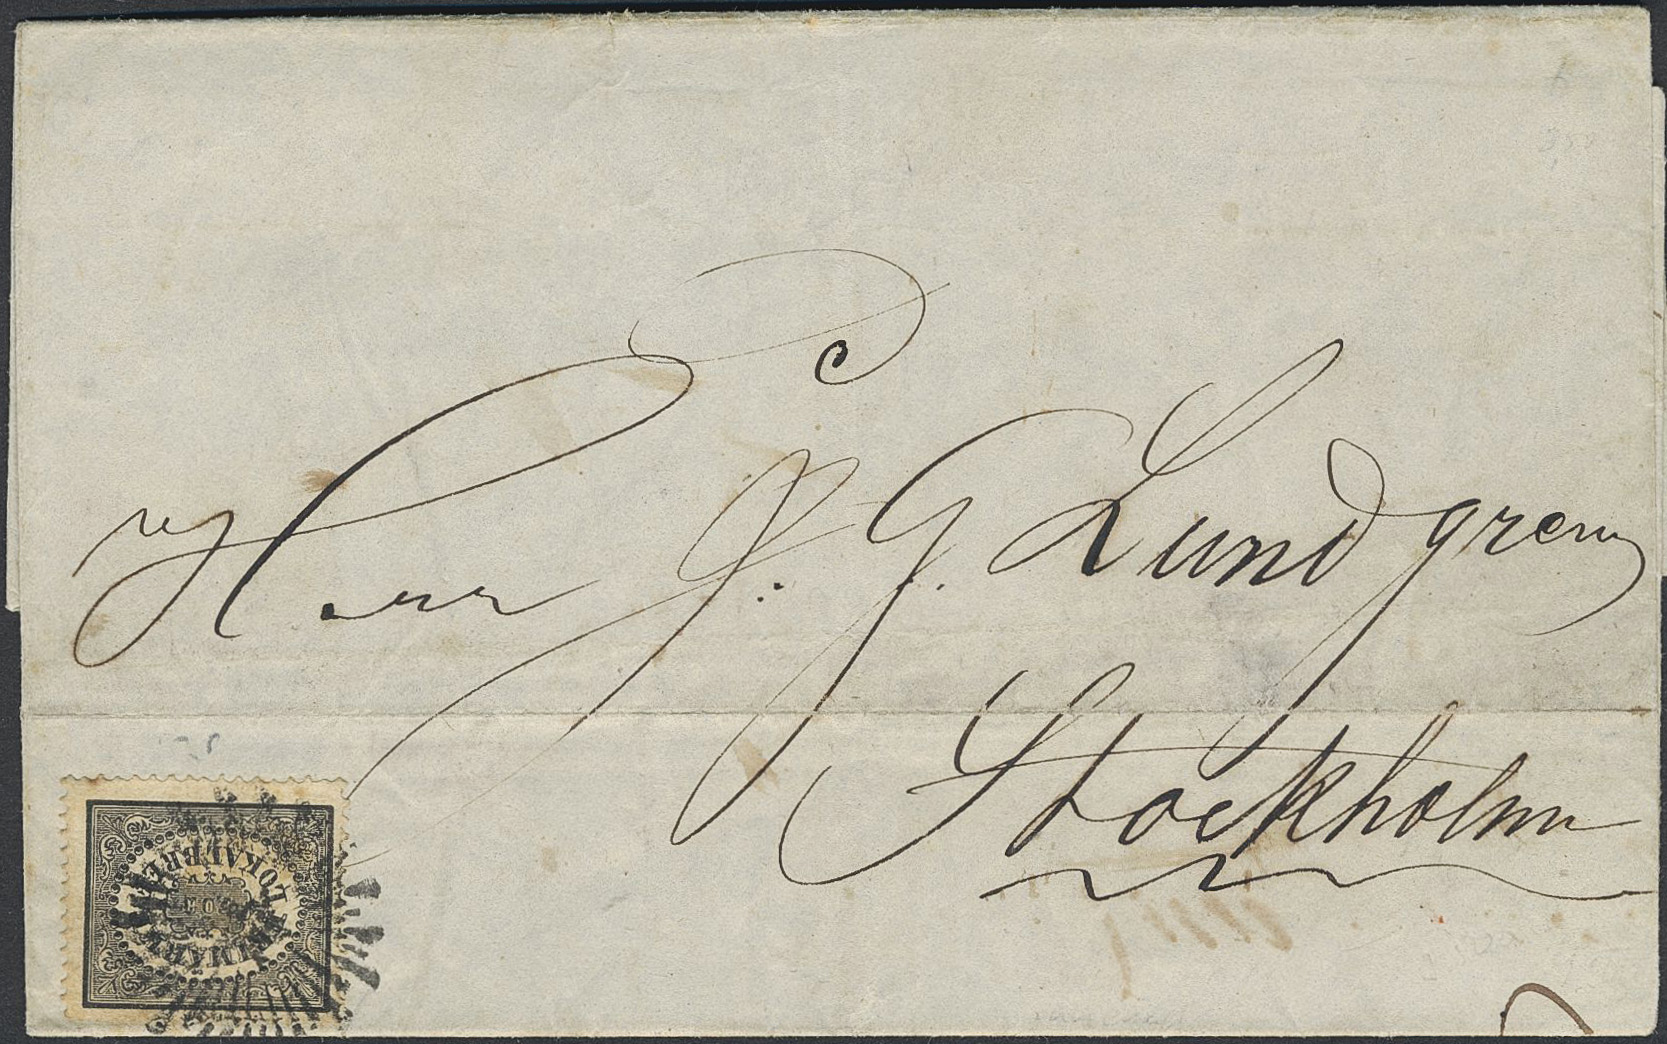 Herr J. G. Lundgren
Stockholm
LOKALBREF
FRIMÄRKE